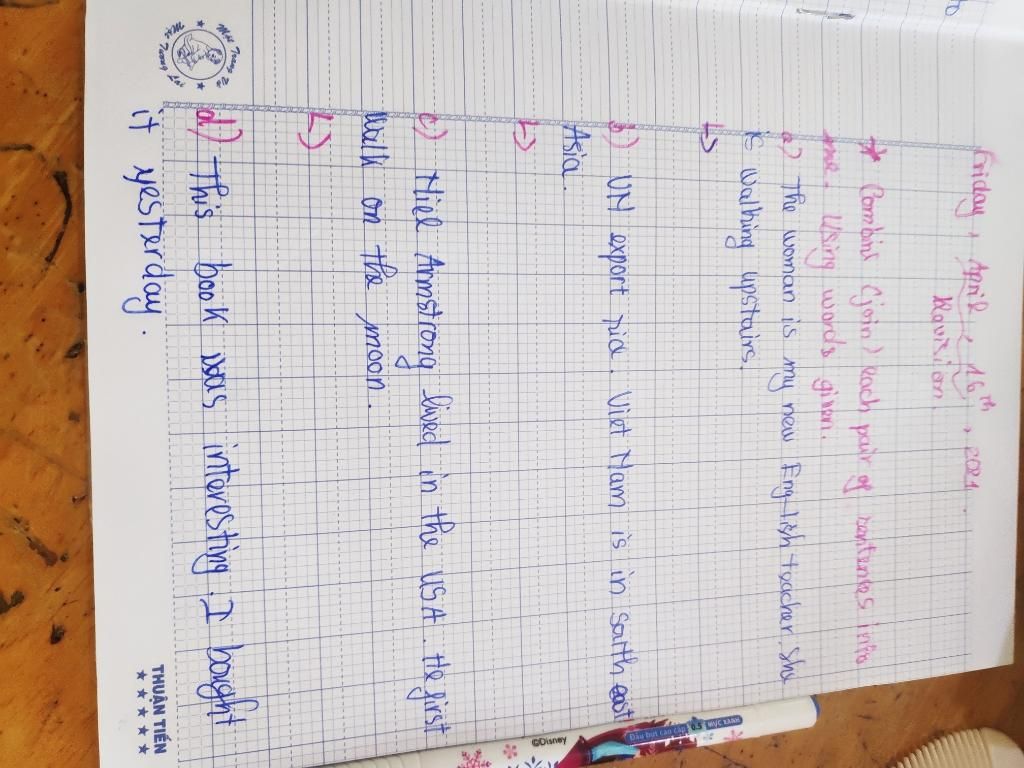 Friday, April, 16th, 2021.
Revision.
* Combine (join) each pair of sentences into
one. Using words given.
a) The woman is my new English teacher She
is walking upstairs.
b) VN export rice. Viet Nam is in South east
Asia.
c) Niel Armstrong lived in the USA. He first
walk on the moon.
d) This book was interesting. I bought
it yesterday.
THUẬN TIẾN
©Disney
Bút cao cấp 0.5 MỰC XANH